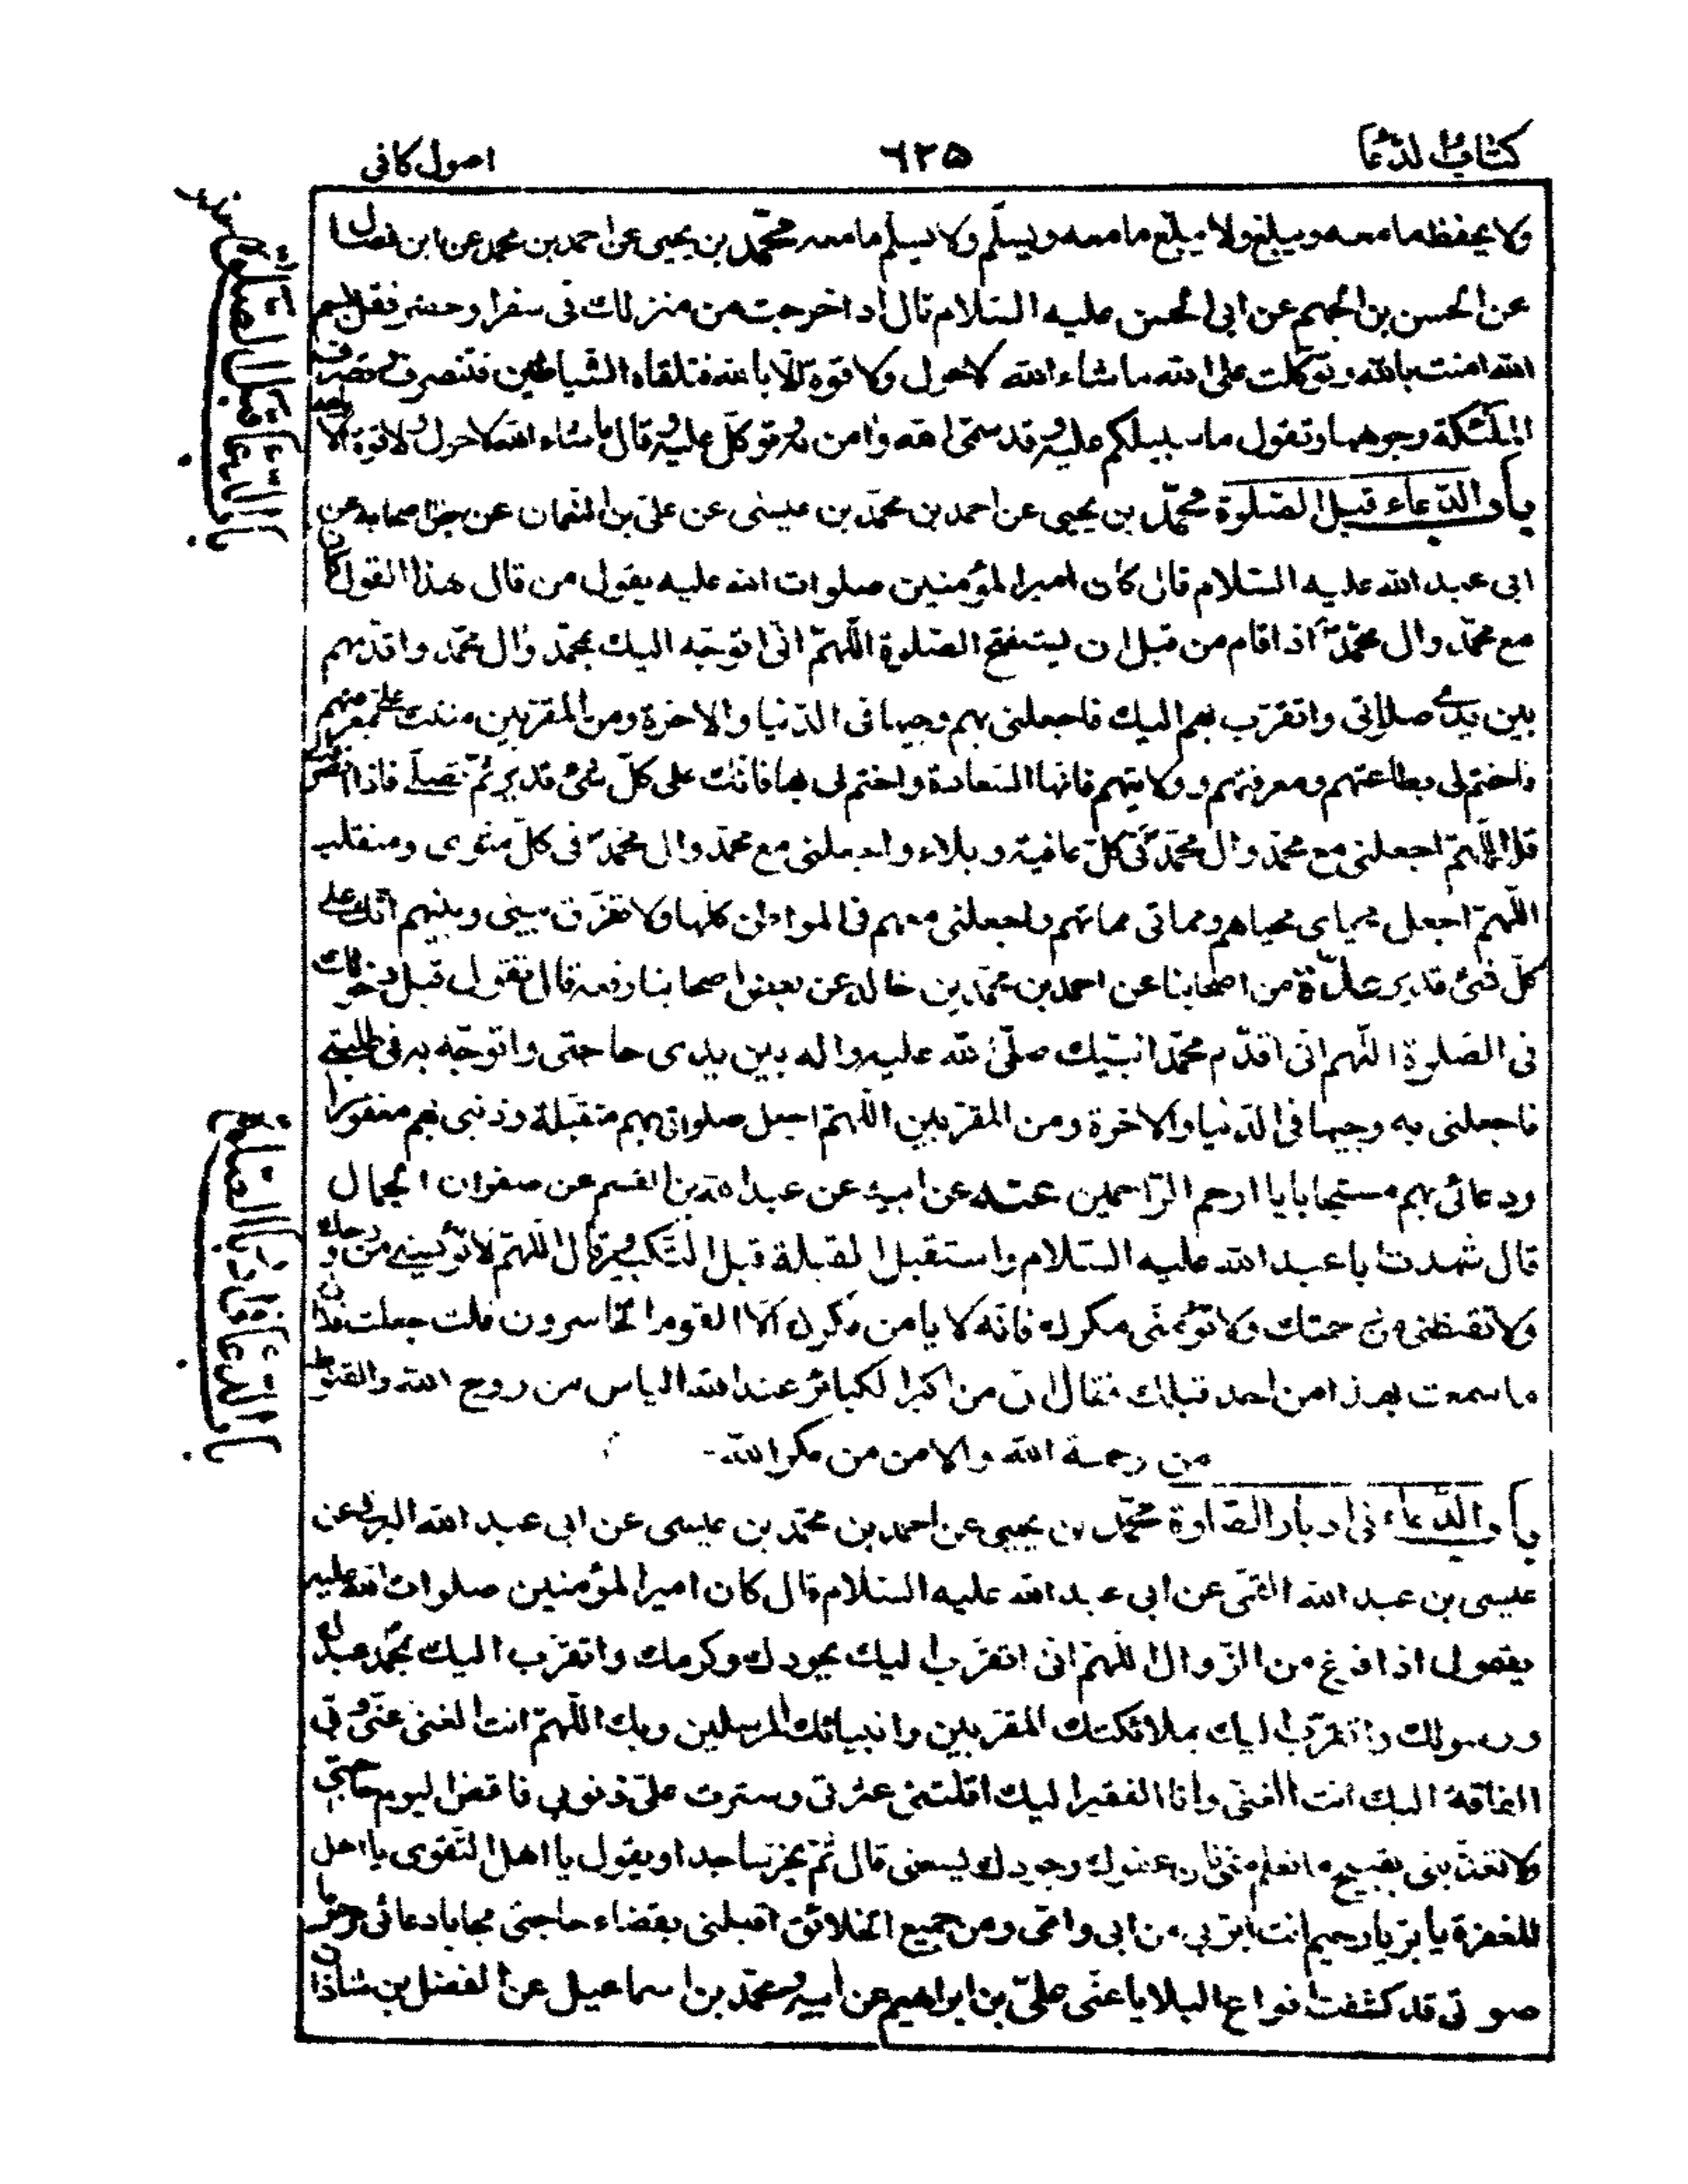 كتاب الدعا
٦٢٥
اصول كافى
ولا يحفظ ما معه ويبلغ ولا يبلغ ما معه ويسلم ولا يسلم ما معه محمد بن يحيى عن احمد بن محمد عن ابن فضال
عن الحسن بن الجهم عن ابى الحسن عليه السلام قال اذا خرجت من منزلك فى سفر او حضر فقل بسم
الله امنت بالله وتوكلت على الله ما شاء الله لا حول ولا قوة الا بالله فتلقاه الشياطين فتنصرف فتضرب
الملئكة وجوهها وتقول ما سبيلكم عليه وقد سمى الله وامن به وتوكل عليه وقال ما شاء الله لا حول ولا قوة الا بالله
باب الدعاء قبل الصلوة محمد بن يحيى عن احمد بن محمد بن عيسى عن على بن النعمان عن بعض اصحابه عن
ابى عبد الله عليه السلام قال كان امير المؤمنين صلوات الله عليه يقول من قال هذا القول كان
مع محمد وال محمد اذا قام من قبل ان يستفتح الصلوة اللهم انى اتوجه اليك بمحمد وال محمد واقدمهم
بين يدى صلاتى واتقرب بهم اليك فاجعلنى بهم وجيها فى الدنيا والاخرة ومن المقربين مننت على بمعرفتهم
فاختم لى بطاعتهم ومعرفتهم وولايتهم فانها السعادة واختم لى بها فانك على كل شئ قدير ثم تصلى فاذا انصرفت
قلت اللهم اجعلنى مع محمد وال محمد فى كل عافية وبلاء واجعلنى مع محمد وال محمد فى كل مثوى ومنقلب
اللهم اجعل محياى محياهم ومماتى مماتهم واجعلنى معهم فى المواطن كلها ولا تفرق بينى وبينهم انك على
كل شئ قدير عدة من اصحابنا عن احمد بن محمد بن خالد عن بعض اصحابنا رفعه قال تقول قبل دخولك
فى الصلوة اللهم انى اقدم محمدا نبيك صلى الله عليه واله بين يدى حاجتى واتوجه به فى طلبتى
فاجعلنى به وجيها فى الدنيا والاخرة ومن المقربين اللهم اجعل صلواتى بهم متقبلة وذنبى بهم مغفورا
ودعائى بهم مستجابا يا ارحم الراحمين عنه عن ابيه عن عبد الله بن القسم عن صفوان الجمال
قال شهدت ابا عبد الله عليه السلام واستقبل القبلة قبل التكبير وقال اللهم لا تؤيسنى من روحك
ولا تقنطنى من رحمتك ولا تؤمنى مكرك فانه لا يامن مكرك الا القوم الخاسرون قلت جعلت فداك
ما سمعت بهذا من احد قبلك فقال ان من اكبر الكبائر عند الله الياس من روح الله والقنوط
من رحمة الله والامن من مكر الله
باب الدعاء فى ادبار الصلوة محمد بن يحيى عن احمد بن محمد بن عيسى عن ابى عبد الله البرقى عن
عيسى بن عبد الله القمى عن ابى عبد الله عليه السلام قال كان امير المؤمنين صلوات الله عليه
يقول اذا فرغ من الزوال اللهم انى اتقرب اليك بجودك وكرمك واتقرب اليك بمحمد عبدك
ورسولك واتقرب اليك بملائكتك المقربين وانبيائك المرسلين وبك اللهم انت الغنى عنى وبى
الفاقة اليك انت الغنى وانا الفقير اليك اقلتنى عثرتى وسترت على ذنوبى فاقض اليوم حاجتى
ولا تعذبنى بقبيح ما تعلم منى فان عفوك وجودك يسعنى قال ثم يخر ساجدا ويقول يا اهل التقوى يا اهل
المغفرة يا بر يا رحيم انت ابر بى من ابى وامى ومن جميع الخلائق اقبلنى بقضاء حاجتى مجابا دعائى مرحوما
صوتى قد كشفت انواع البلايا عنى على بن ابراهيم عن ابيه ومحمد بن اسماعيل عن الفضل بن شاذان
باب الدعاء قبل الصلوة
باب الدعاء فى ادبار الصلوة